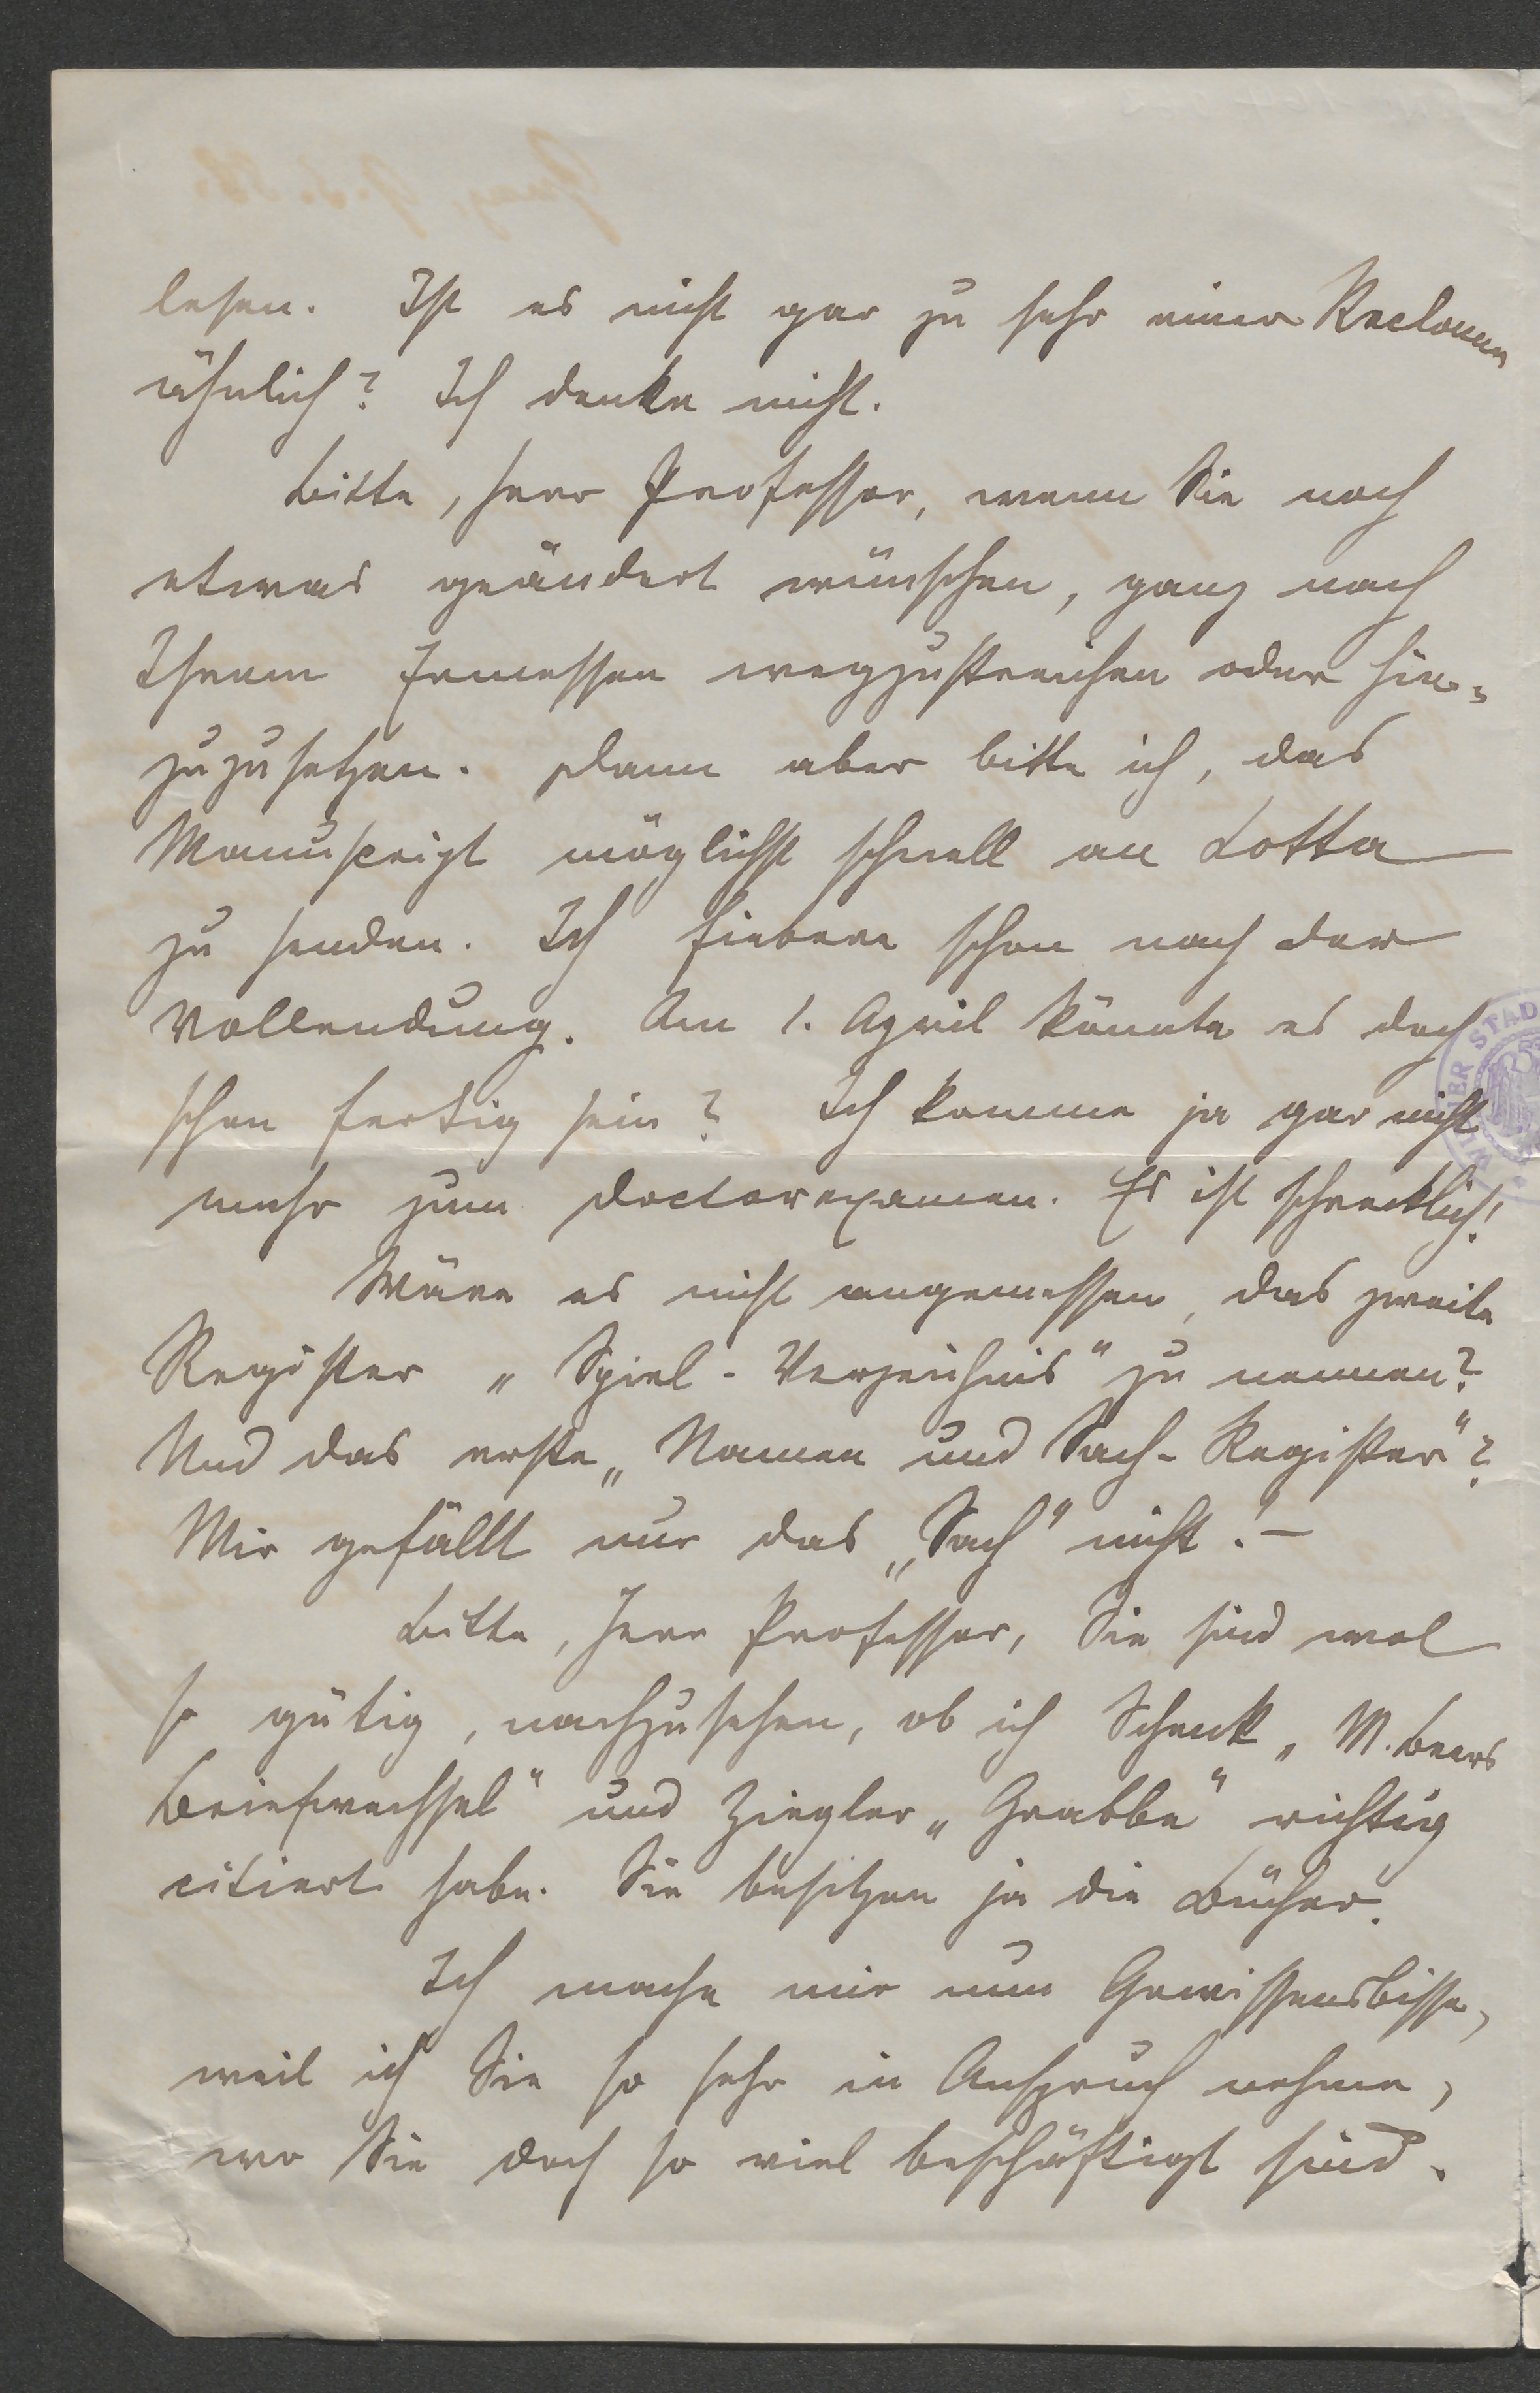 lesen. Ist es nicht gar zu sehr einer Reclame
ähnlich? Ich denke nicht.
Bitte, Herr Professor, wenn Sie noch
etwas geändert wünschen, ganz nach
Ihrem Ermessen wegzustreichen oder hin-
zuzusetzen. Dann aber bitte ich, das
Manuscript möglichst schnell an Cotta
zu senden. Ich fiebere schon nach der
Vollendung. Am 1. April könnte es doch
schon fertig sein? Ich komme ja gar nicht
mehr zum Doctorexamen. Es ist schrecklich!
Wäre es nicht angemessen, das zweite
Register „Spiel-Verzeichnis“ zu nennen?
Und das erste „Namen und Sach-Register“?
Mir gefällt nur das „Sach“ nicht! –
Bitte, Herr Professor, Sie sind wol
so gütig, nachzusehen, ob ich Schenk „M. Beers
Briefwechsel“ und Ziegler „Grabbe“ richtig
citiert habe. Sie besitzen ja die Bücher.
Ich mache mir nun Gewissensbisse,
weil ich Sie so sehr in Anspruch nehme,
wo Sie doch so viel beschäftigt sind.